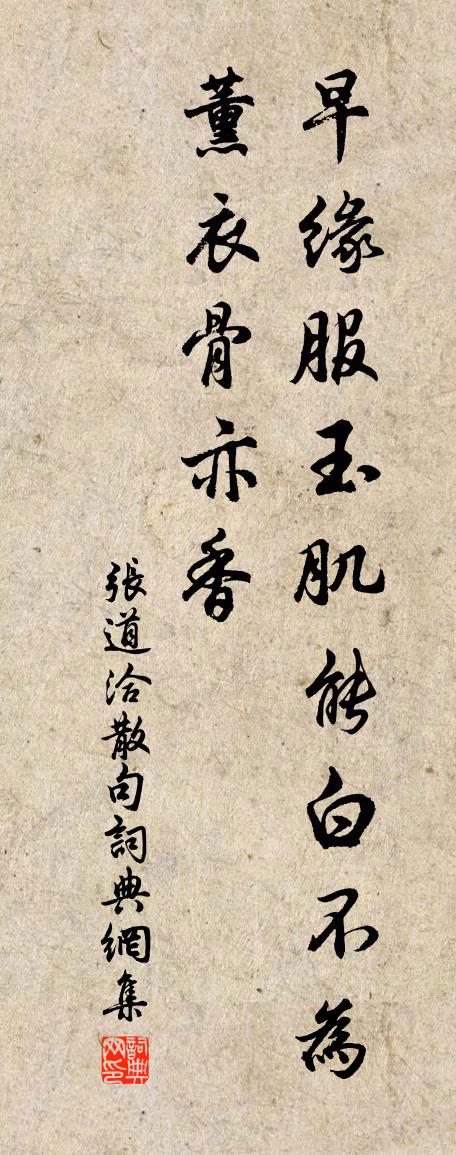 早緣服玉肌能白不為
薰衣骨亦香
張道洽散句詞典網集
詞典網印